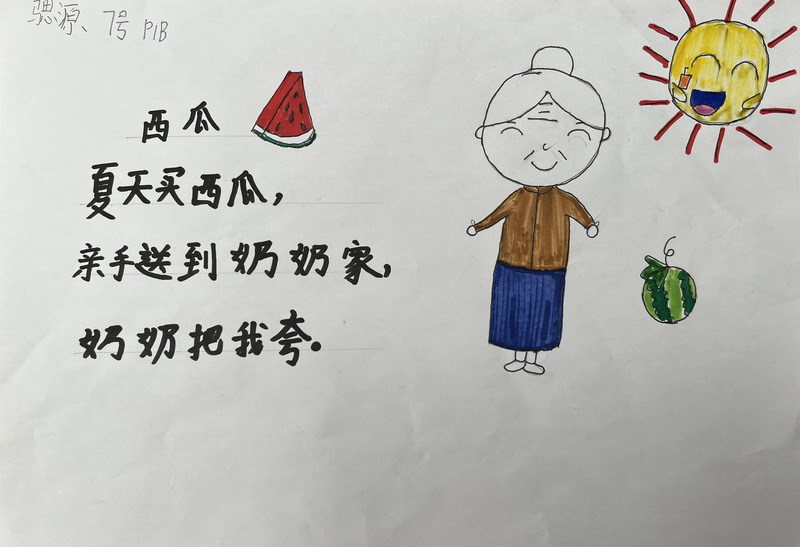 骢源、7号 P1B
西瓜
夏天买西瓜，
亲手送到奶奶家，
奶奶把我夸。